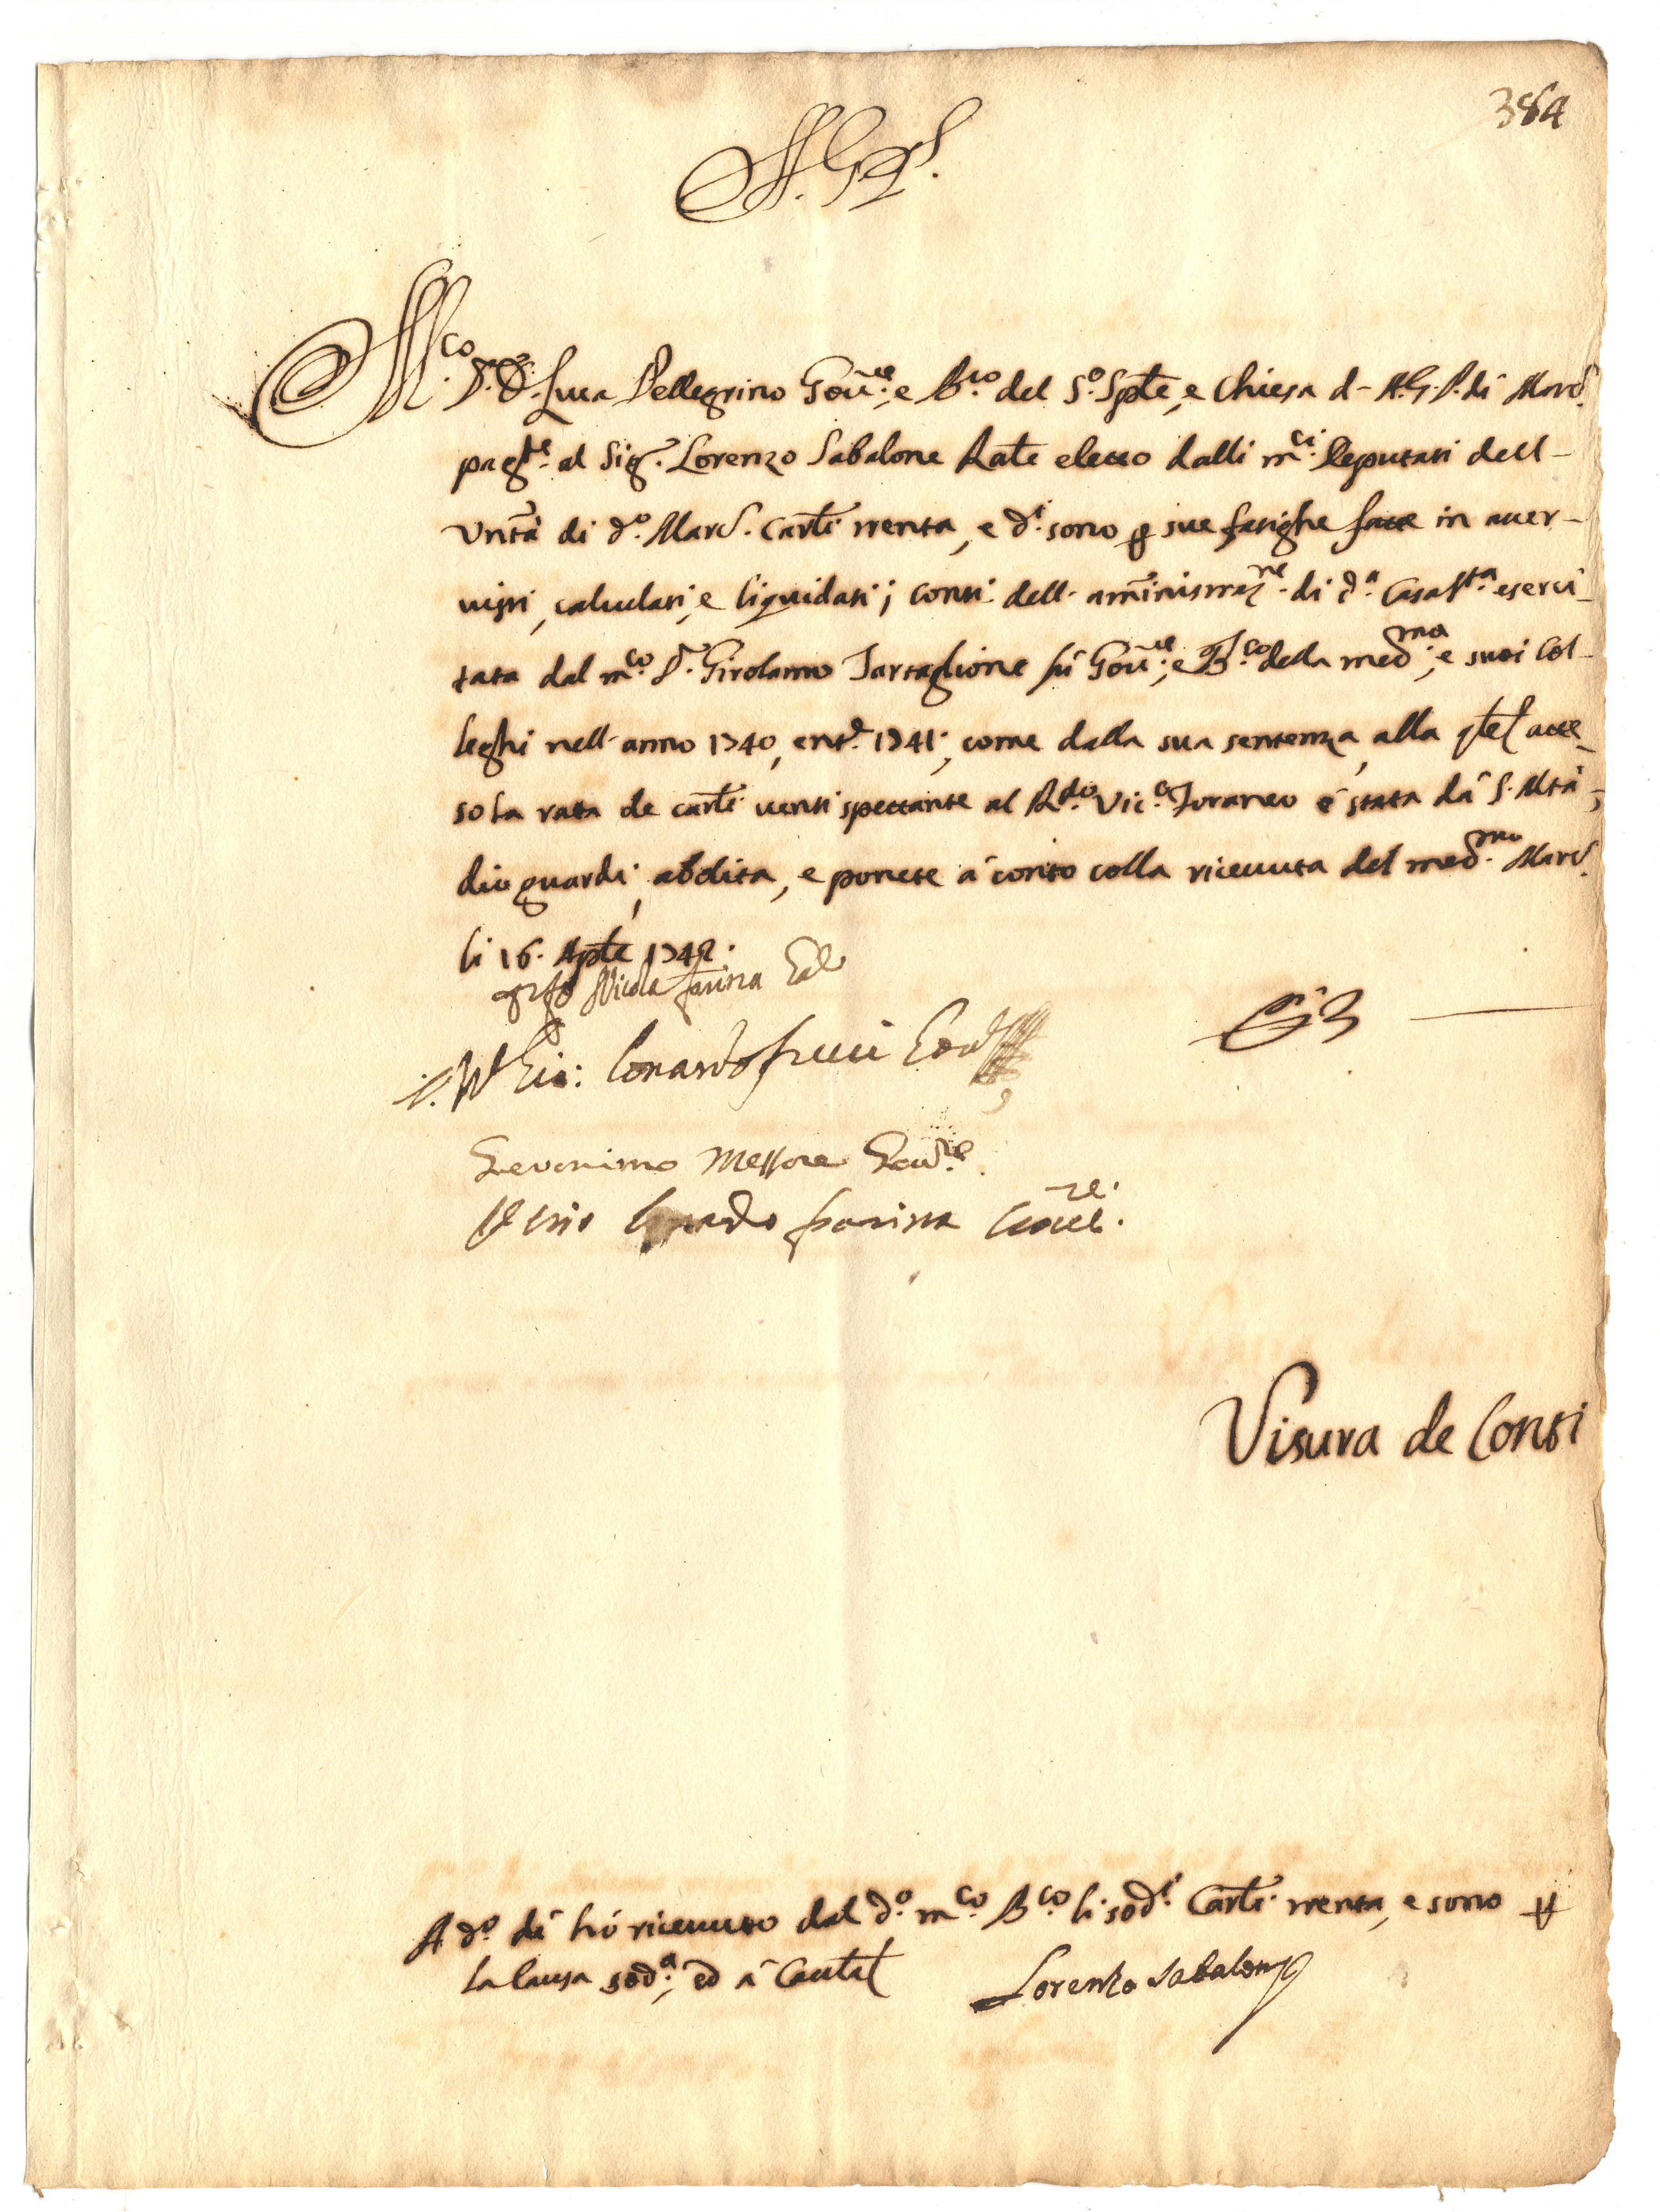 384
A. G. P.
M.co D.r D. Luca Pellegrino Gov.re, e B.co del S.o Sple, e Chiesa d- A. G. P. di Marc.
pag.te al Sig.r Lorenzo Sabalone Rale eletto dalli m.ci Deputati dell-
Untà di d.o Marc. Carli trenta, e d.i sono p sue fatighe fatte in aver-
visti, calculati, e liquidati i conti dell- amministraz.ne di d.a Casa S.ta eserci-
tata dal m.co D.r Girolamo Tartaglione fù Gov.re, e B.co della med.ma, e suoi Col-
leghi nell- anno 1740, ent.e 1741, come dalla sua sentenza, alla qle
so la rata de carli venti spettante al R.do Vic.o Foraneo è stata dà S. Mtà,
dio guardi, abolita, e ponete à conto colla ricevuta del med.mo Marc.
li 16. Aple 1742.
Nicola farina
Gio: Lonardo
Geronimo Messore Gov.re
Lonardo farina Gove.re
Visura de Conti
A d.o dì hò ricevuto dal d.o m.co B.co li sod.i Carli trenta, e sono p
la causa sod.a, ed à Cautel
Lorenzo Sabalone